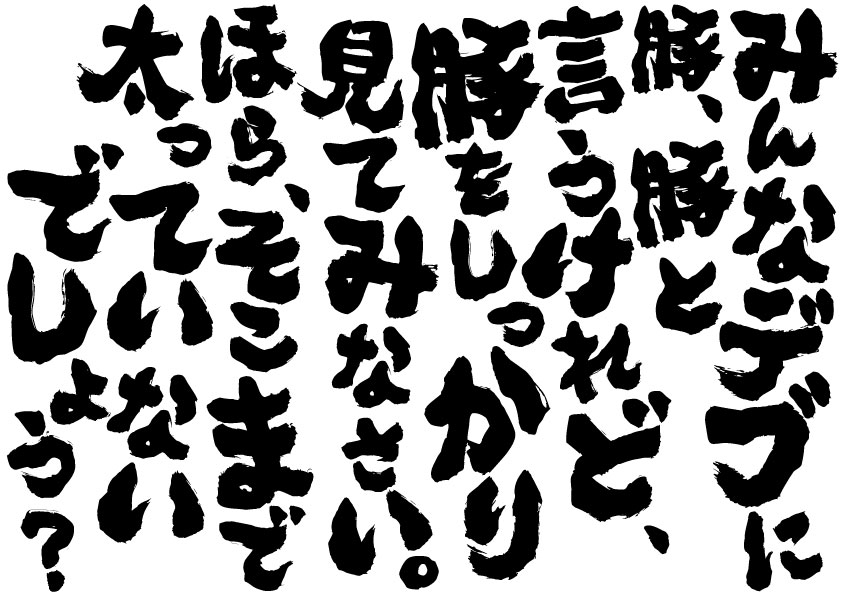 みんなデブに
豚、豚と
言うけれど、
豚をしっかり
見てみなさい。
ほら、そこまで
太っていない
でしょう?